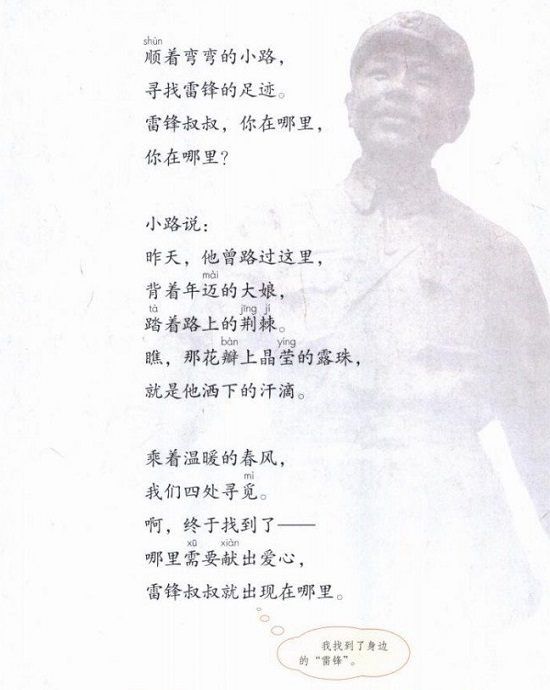 shùn
顺着弯弯的小路，
寻找雷锋的足迹。
雷锋叔叔，你在哪里，
你在哪里？
小路说：
昨天，他曾路过这里，
mài
背着年迈的大娘，
tà jīng jí
踏着路上的荆棘。
bàn yíng
瞧，那花瓣上晶莹的露珠，
就是他洒下的汗滴。
乘着温暖的春风，
mì
我们四处寻觅。
啊，终于找到了——
xū xiàn
哪里需要献出爱心，
雷锋叔叔就出现在哪里。
我找到了身边
的“雷锋”。